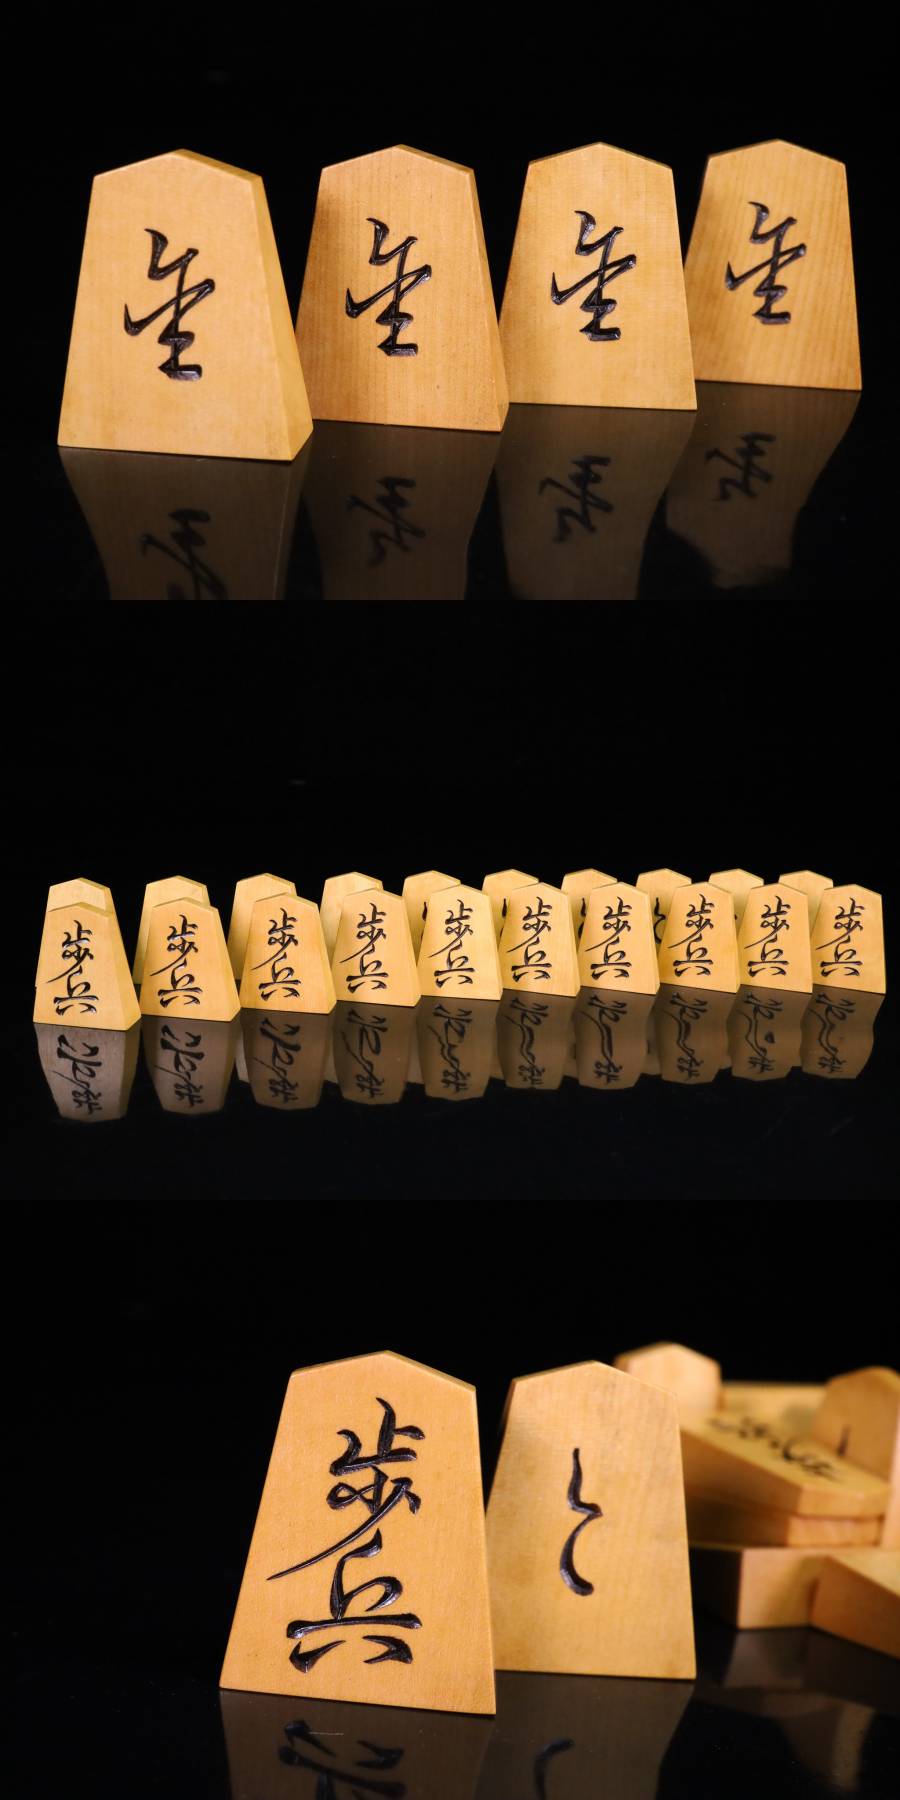 金
金
金
金
歩兵
歩兵
歩兵
歩兵
歩兵
歩兵
歩兵
歩兵
歩兵
歩兵
歩兵
と